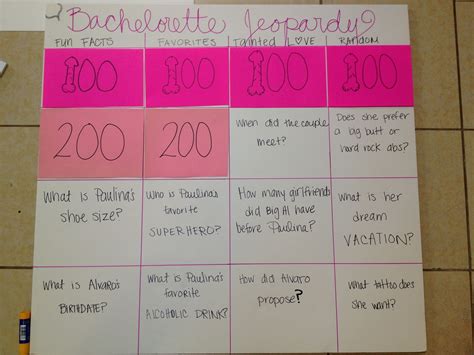 Bachelorette Jeopardy?
FUN FACTS
FAVORITES
Tainted L♡VE
RANDOM
100
100
100
100
200
200
When did the couple
meet?
Does she prefer
a big butt or
hard rock abs?
What is Paulina's
shoe size?
Who is Paulina's
favorite
SUPERHERO?
How many girlfriends
did Big Al have
before Paulina?
What is her
dream
VACATION?
What is Alvaro's
BIRTHDATE?
What is Paulina's
favorite
ALCOHOLIC DRINK?
How did Alvaro
propose?
What tattoo does
she want?